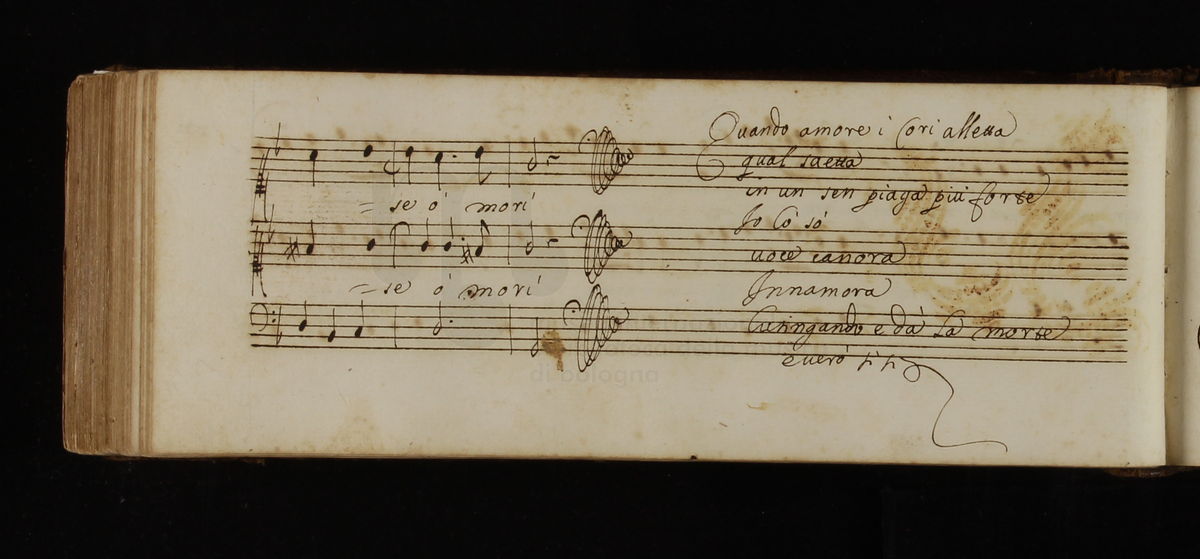 = se ó morí
= se ó morí
Quando amore i Cori alletta
qual saetta
in un sen piaga piu forte
Io lò sò
uoce canora
Innamora
Lusingando e dà la morte
è uero sì sì
di bologna